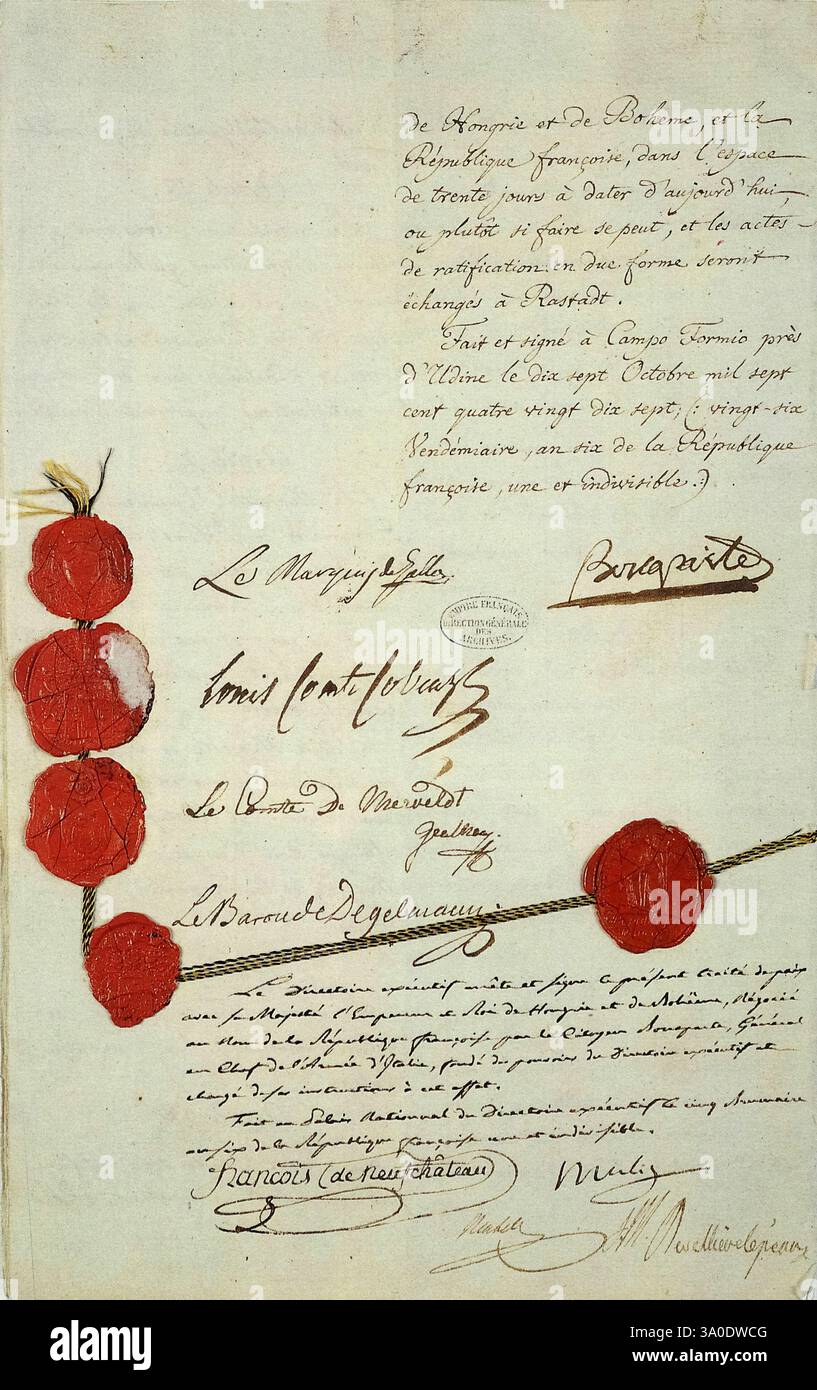 de Hongrie et de Boheme, et la
République françoise, dans l'espace
de trente jours à dater d'aujourd'hui,
ou plutôt si faire se peut, et les actes
de ratification en due forme seront
échangés à Rastadt.
Fait et signé à Campo Formio près
d'Udine le dix sept Octobre mil sept
cent quatre vingt dix sept; (: vingt-six
Vendémiaire, an six de la République
françoise, une et indivisible.:)
Le Marquis de Gallo
Bonaparte
EMPIRE FRANÇAIS
DIRECTION GÉNÉRALE
DES
ARCHIVES.
Louis Comte Cobenzl
Le Comte De Merveldt
Le Baron de Degelmann
Le Directoire exécutif arrête et signe le présent traité de paix
avec sa Majesté l'Empereur et Roi de Hongrie et de Bohême, Négocié
au Nom de la République françoise par le Citoyen Bonaparte, Général
en Chef de l'Armée d'Italie, fondé de pouvoirs du Directoire exécutif et
chargé de ses instructions à cet effet.
Fait au Palais National du Directoire exécutif le cinq Brumaire
an six de la République françoise une et indivisible.
françois (de neufchâteau)
Merlin
L M Revellière lépeaux
alamy
Image ID: 3A0DWCG
www.alamy.com